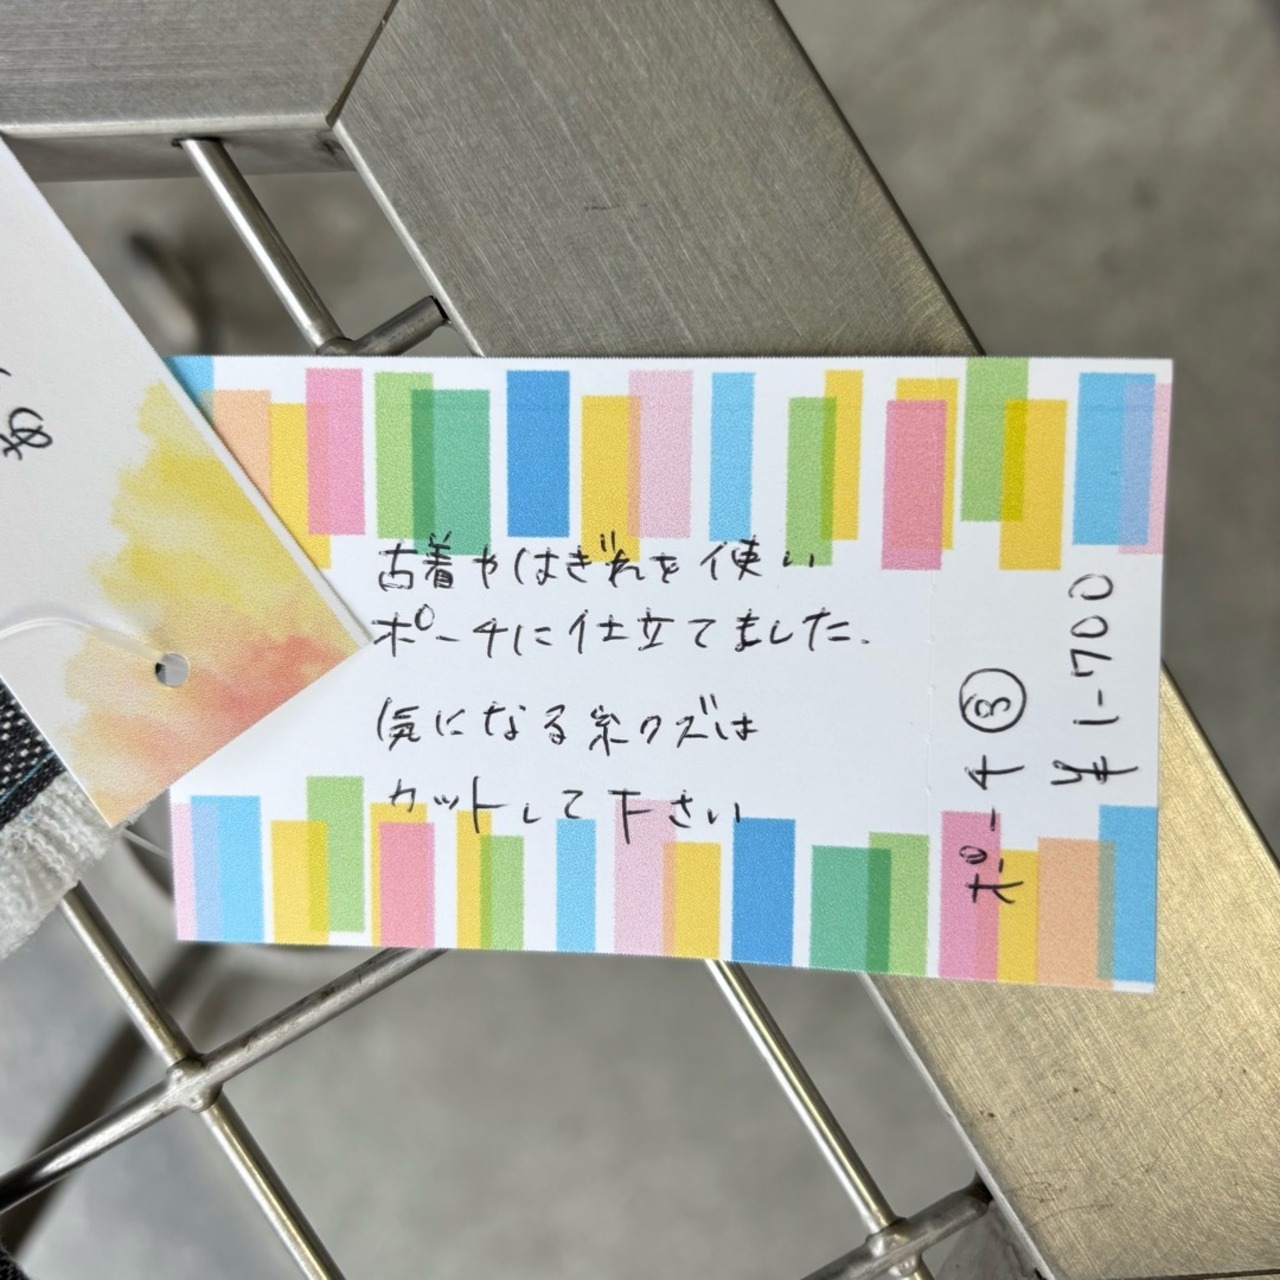 古着やはぎれを使い
ポーチに仕立てました.
気になる糸クズは
カットして下さい
ポーチ③
¥1-700